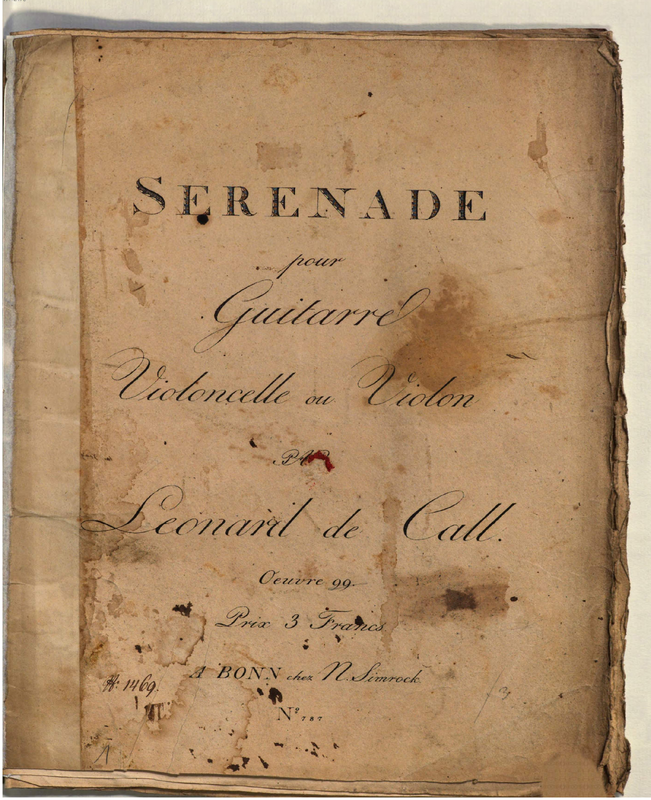 SERENADE
pour
Guitarre
Violoncelle ou Violon
PAR
Leonard de Call.
Oeuvre 99.
Prix 3 Francs
A BONN chez N. Simrock
N.º 787
1469.